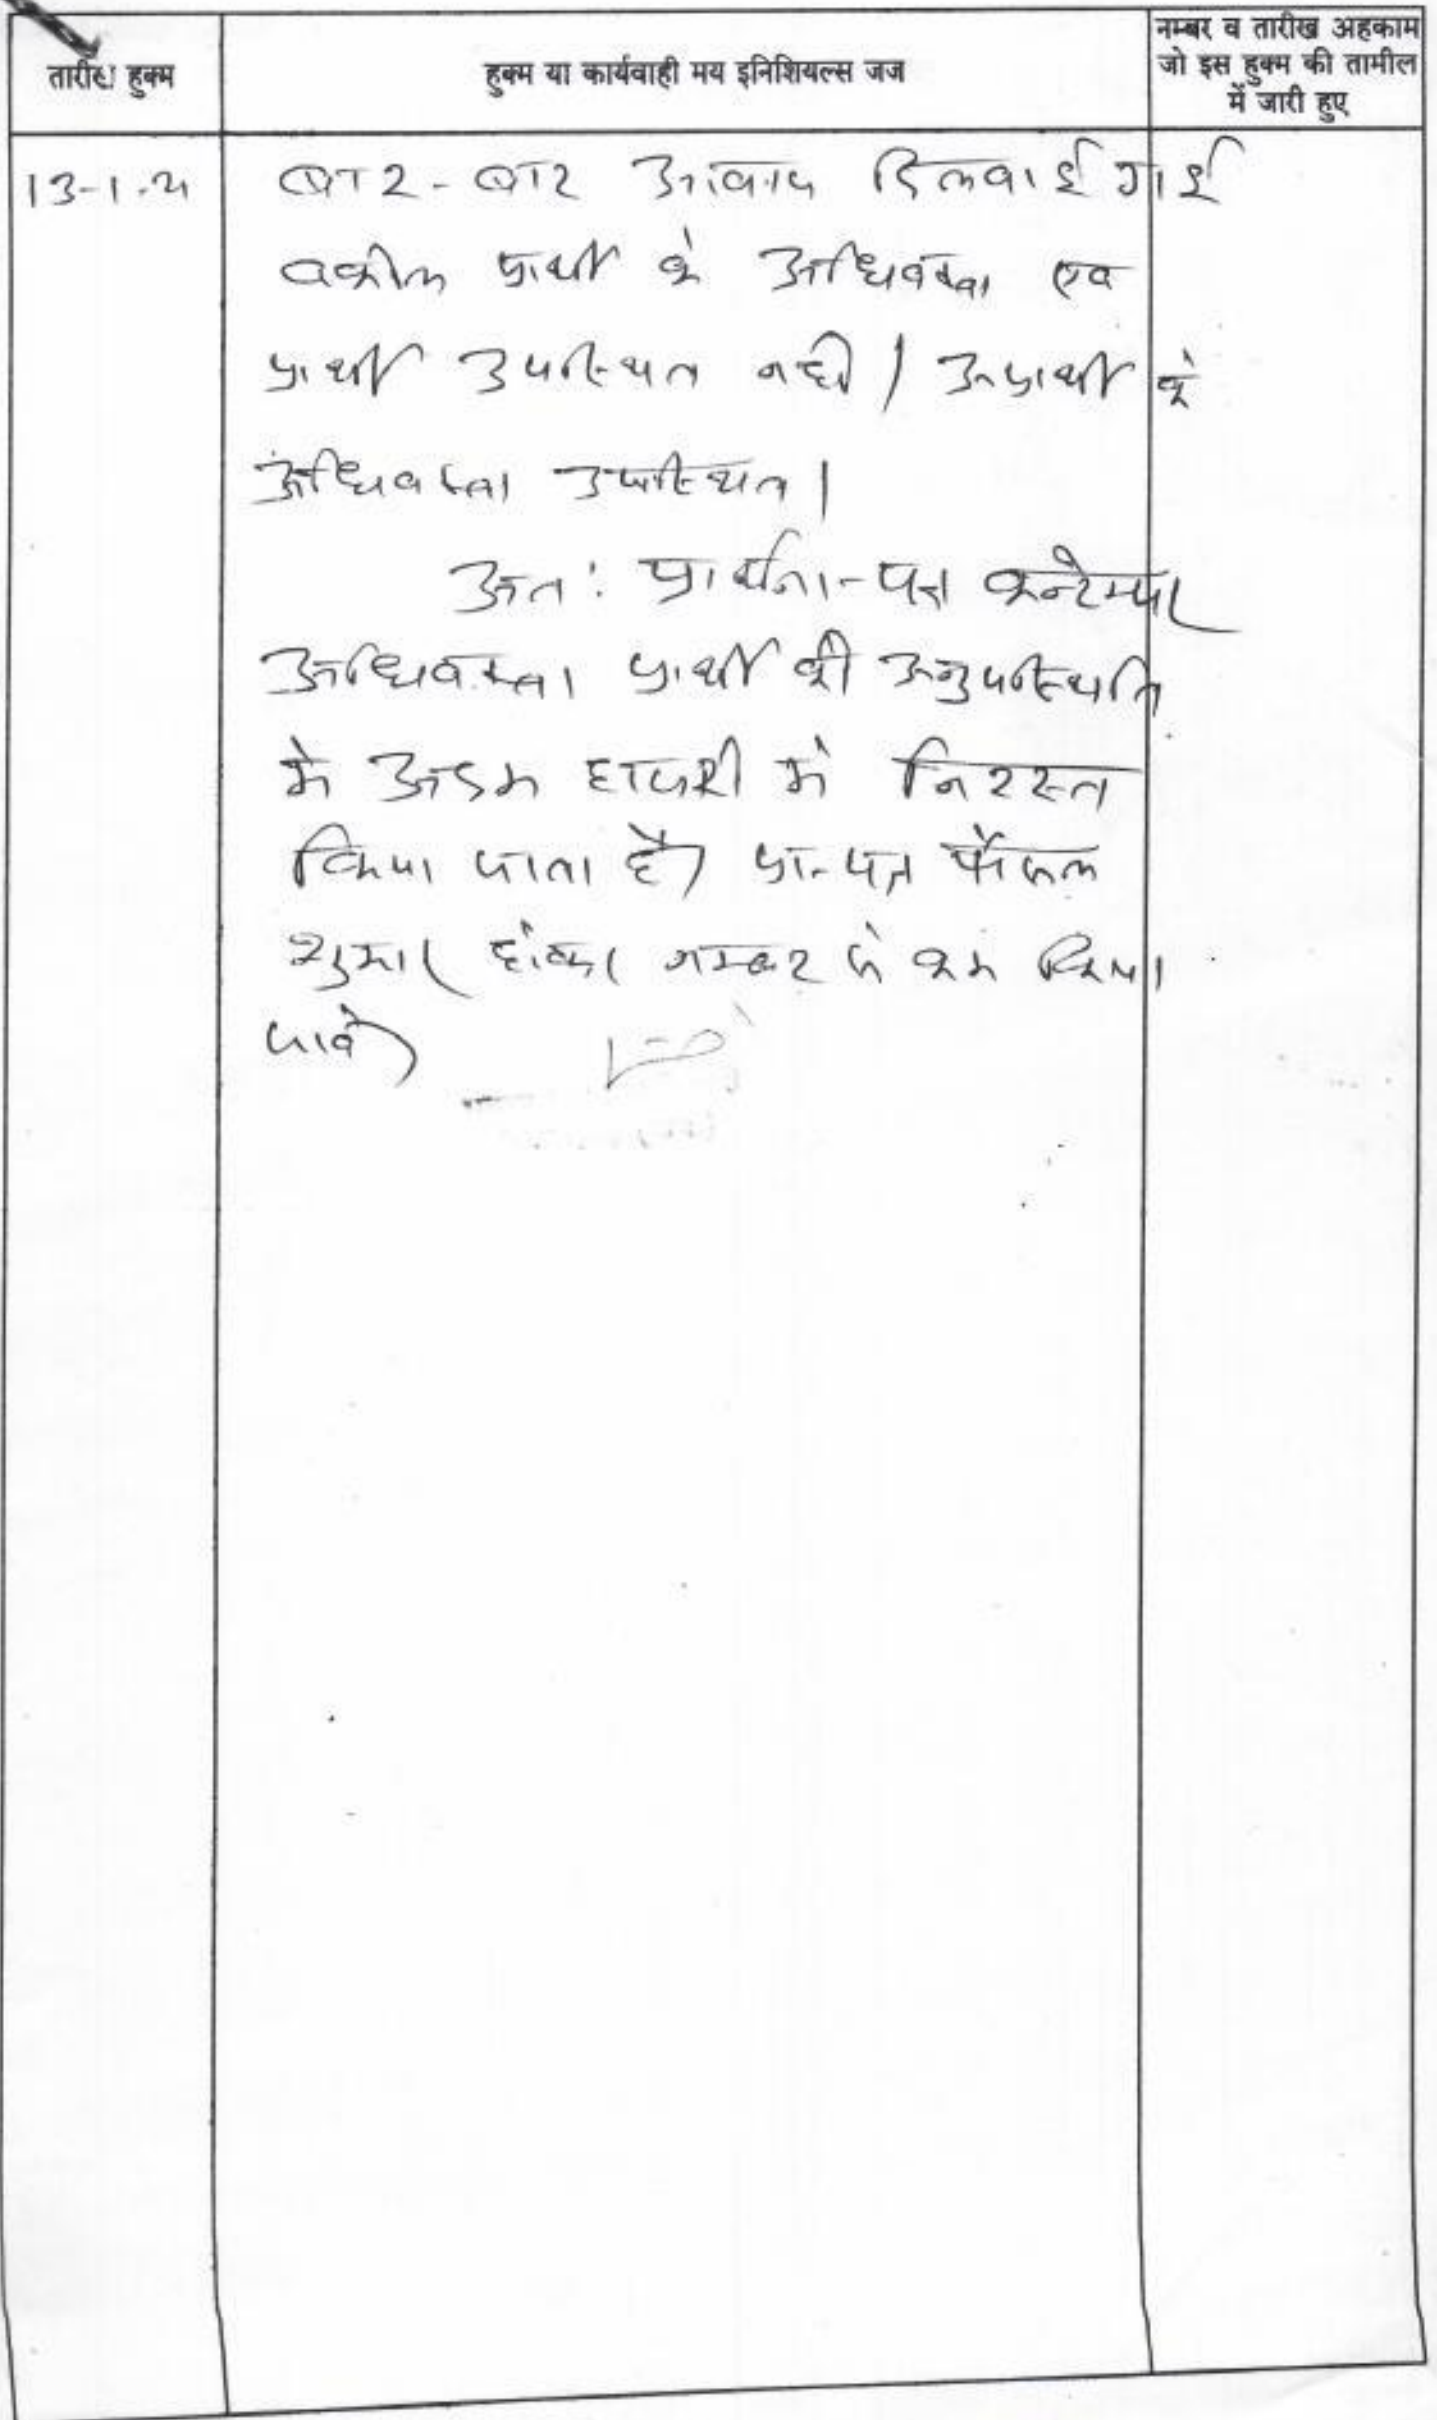 तारीख हुक्म
हुक्म या कार्यवाही मय इनिशियल्स जज
नम्बर व तारीख अहकाम
जो इस हुक्म की तामील
में जारी हुए
13-1-21
बार-बार आवाज दिलवाई गई
वकील प्रार्थी के अधिवक्ता एव
प्रार्थी उपस्थित नही। अप्रार्थी के
अधिवक्ता उपस्थित।
अत: प्रार्थना-पत्र कन्टेम्पट
अधिवक्ता प्रार्थी की अनुपस्थिति
मे अदम हाजरी मे निरस्त
किया जाता है। प्रा-पत्र फैसल
शुमार होकर नम्बर से कम किया
जावे।